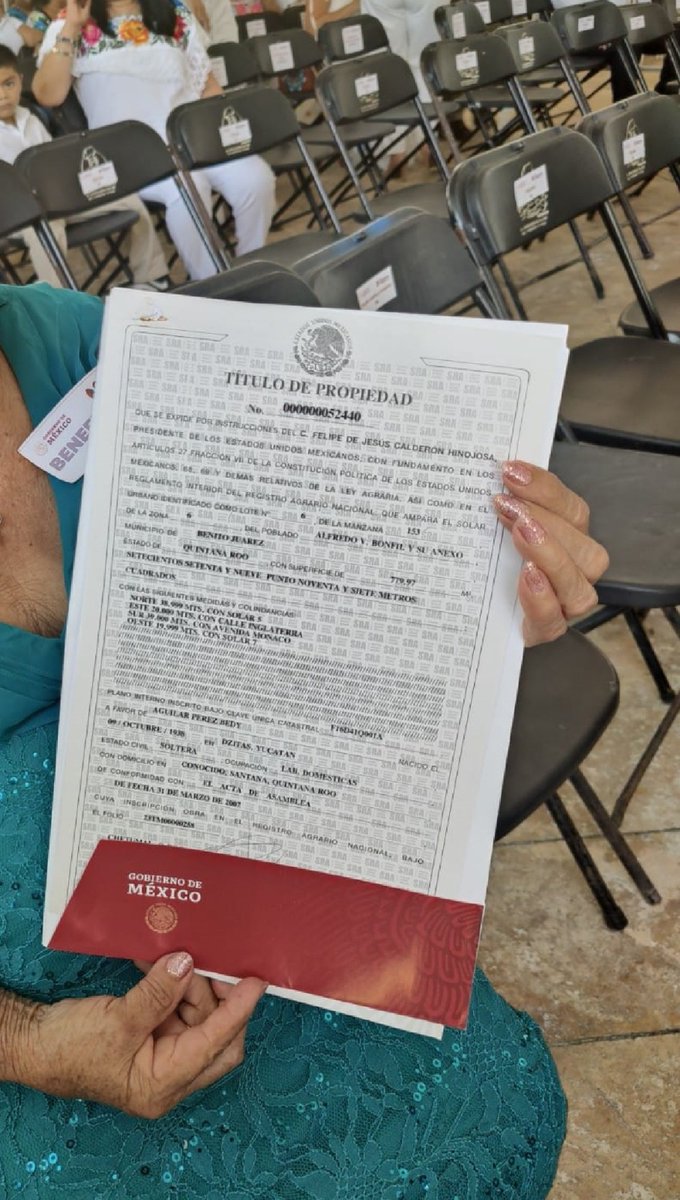 GOBIERNO DE
MÉXICO
BENE
TÍTULO DE PROPIEDAD
No. 000000052440
QUE SE EXPIDE POR INSTRUCCIONES DEL C. FELIPE DE JESUS CALDERON HINOJOSA,
PRESIDENTE DE LOS ESTADOS UNIDOS MEXICANOS; CON FUNDAMENTO EN LOS
ARTICULOS 27 FRACCION VII DE LA CONSTITUCION POLITICA DE LOS ESTADOS UNIDOS
MEXICANOS, 68, 69 Y DEMAS RELATIVOS DE LA LEY AGRARIA, ASI COMO EN EL
REGLAMENTO INTERIOR DEL REGISTRO AGRARIO NACIONAL, QUE AMPARA EL SOLAR
URBANO IDENTIFICADO COMO LOTE Nº 6 DE LA MANZANA 153
DE LA ZONA 6 DEL POBLADO ALFREDO V. BONFIL Y SU ANEXO ,
MUNICIPIO DE BENITO JUAREZ
ESTADO DE QUINTANA ROO CON SUPERFICIE DE 779.97 M²,
SETECIENTOS SETENTA Y NUEVE PUNTO NOVENTA Y SIETE METROS
CUADRADOS
CON LAS SIGUIENTES MEDIDAS Y COLINDANCIAS:
NORTE 38.999 MTS. CON SOLAR 5
ESTE 20.009 MTS. CON CALLE INGLATERRA
SUR 39.000 MTS. CON AVENIDA MONACO
OESTE 19.999 MTS. CON SOLAR 7
PLANO INTERNO INSCRITO BAJO CLAVE UNICA CATASTRAL F16D41Q001A
A FAVOR DE AGUILAR PEREZ BEDY NACIDO EL
09 / OCTUBRE / 1930 EN DZITAS, YUCATAN
ESTADO CIVIL SOLTERA OCUPACION LAB. DOMESTICAS
CON DOMICILIO EN CONOCIDO, SANTANA, QUINTANA ROO
DE CONFORMIDAD CON EL ACTA DE ASAMBLEA
DE FECHA 31 DE MARZO DE 2007
CUYA INSCRIPCION, OBRA EN EL REGISTRO AGRARIO NACIONAL, BAJO
EL FOLIO 23TM00000258
CHETUMAL
GOBIERNO DE
MÉXICO